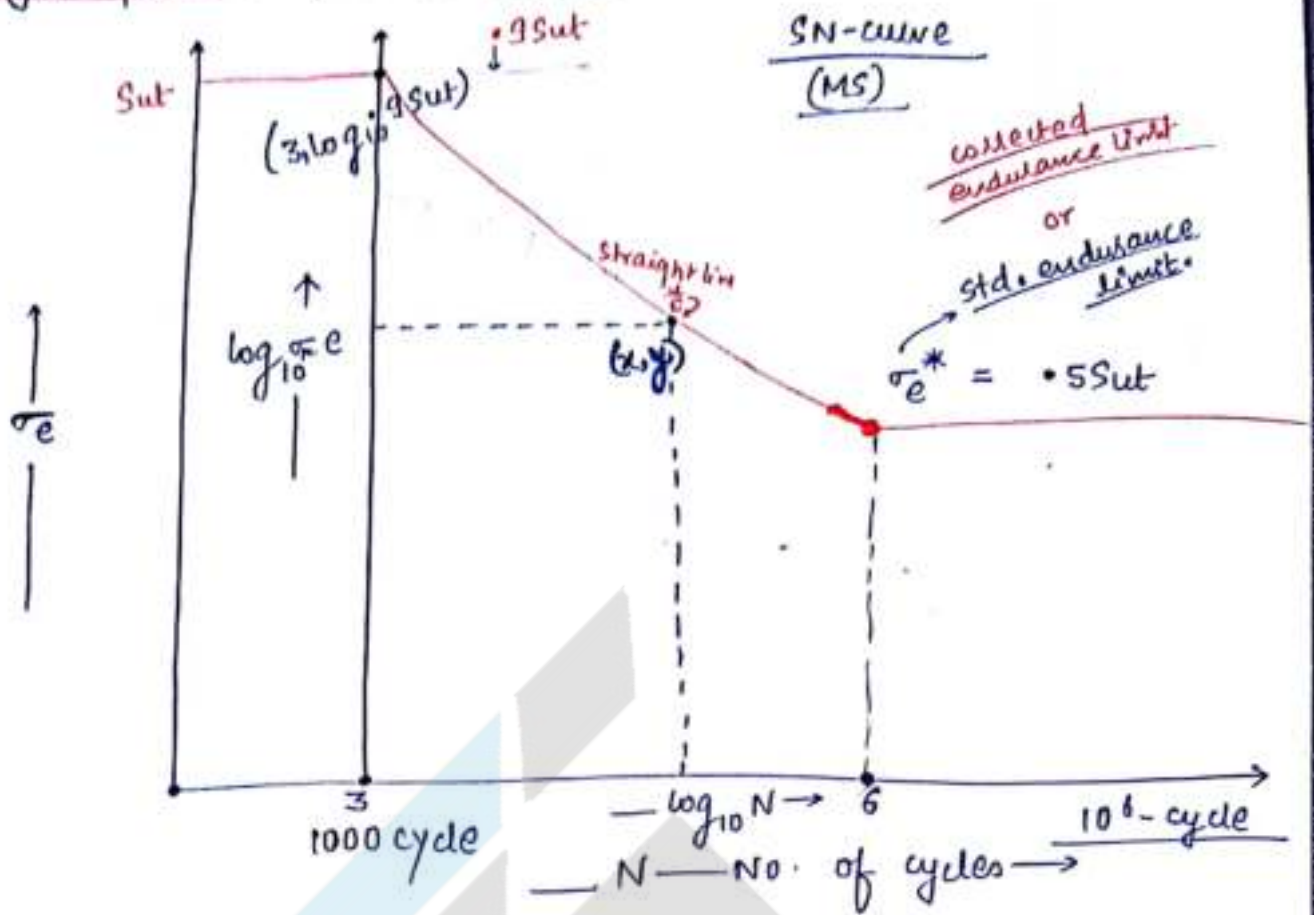 .9Sut
SN-curve
(MS)
Sut
(3, log₁₀ .9Sut)
corrected
endurance limit
or
std. endurance
limit.
straight line
log₁₀ σe
(x, y)
σe* = .5Sut
σe
3
log₁₀ N →
6
1000 cycle
10⁶-cycle
N — No. of cycles →